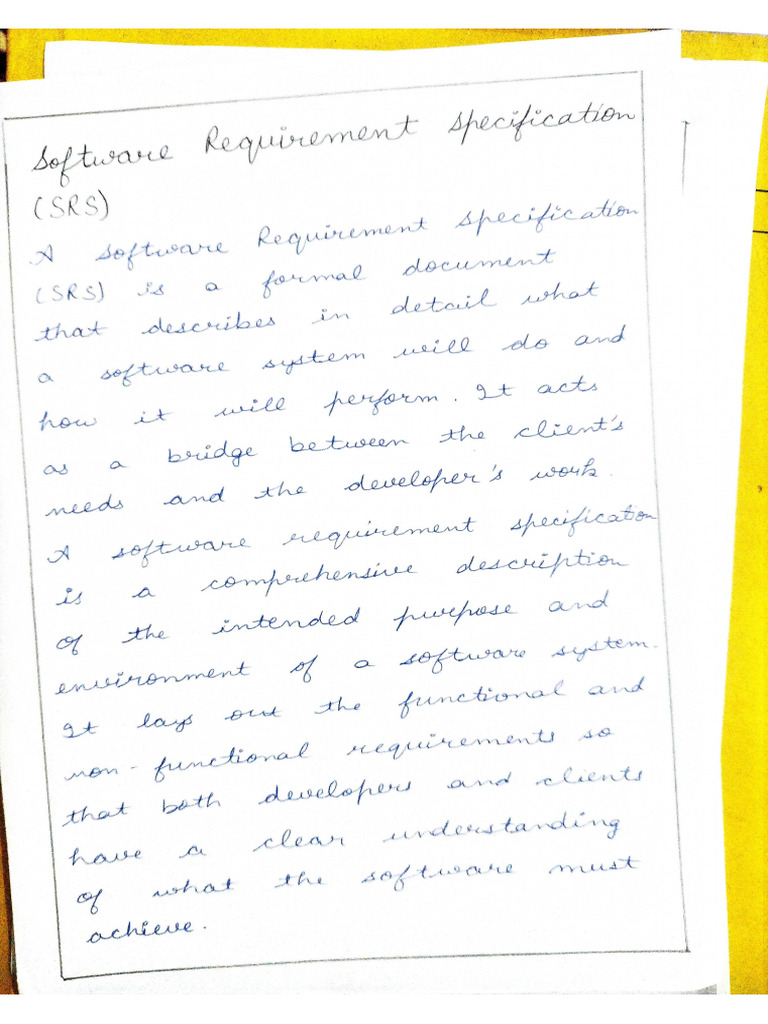 Software Requirement Specification
(SRS)
A Software Requirement Specification
(SRS) is a formal document
that describes in detail what
a software system will do and
how it will perform. It acts
as a bridge between the client's
needs and the developer's work.
A software requirement specification
is a comprehensive description
of the intended purpose and
environment of a software system.
It lays out the functional and
non-functional requirements so
that both developers and clients
have a clear understanding
of what the software must
achieve.